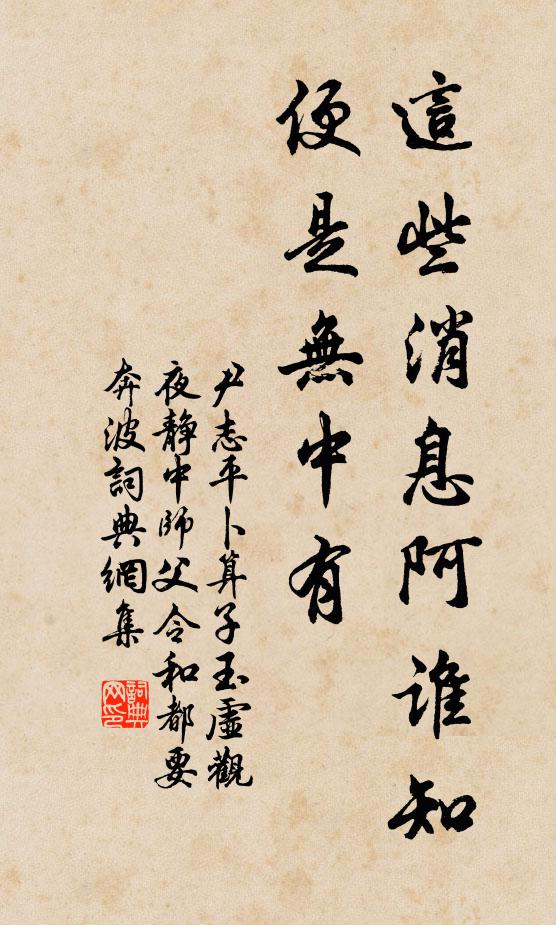 這些消息阿谁知
便是無中有
尹志平卜算子玉虛觀
夜靜中師父令和都要
奔波詞典網集
詞典网印